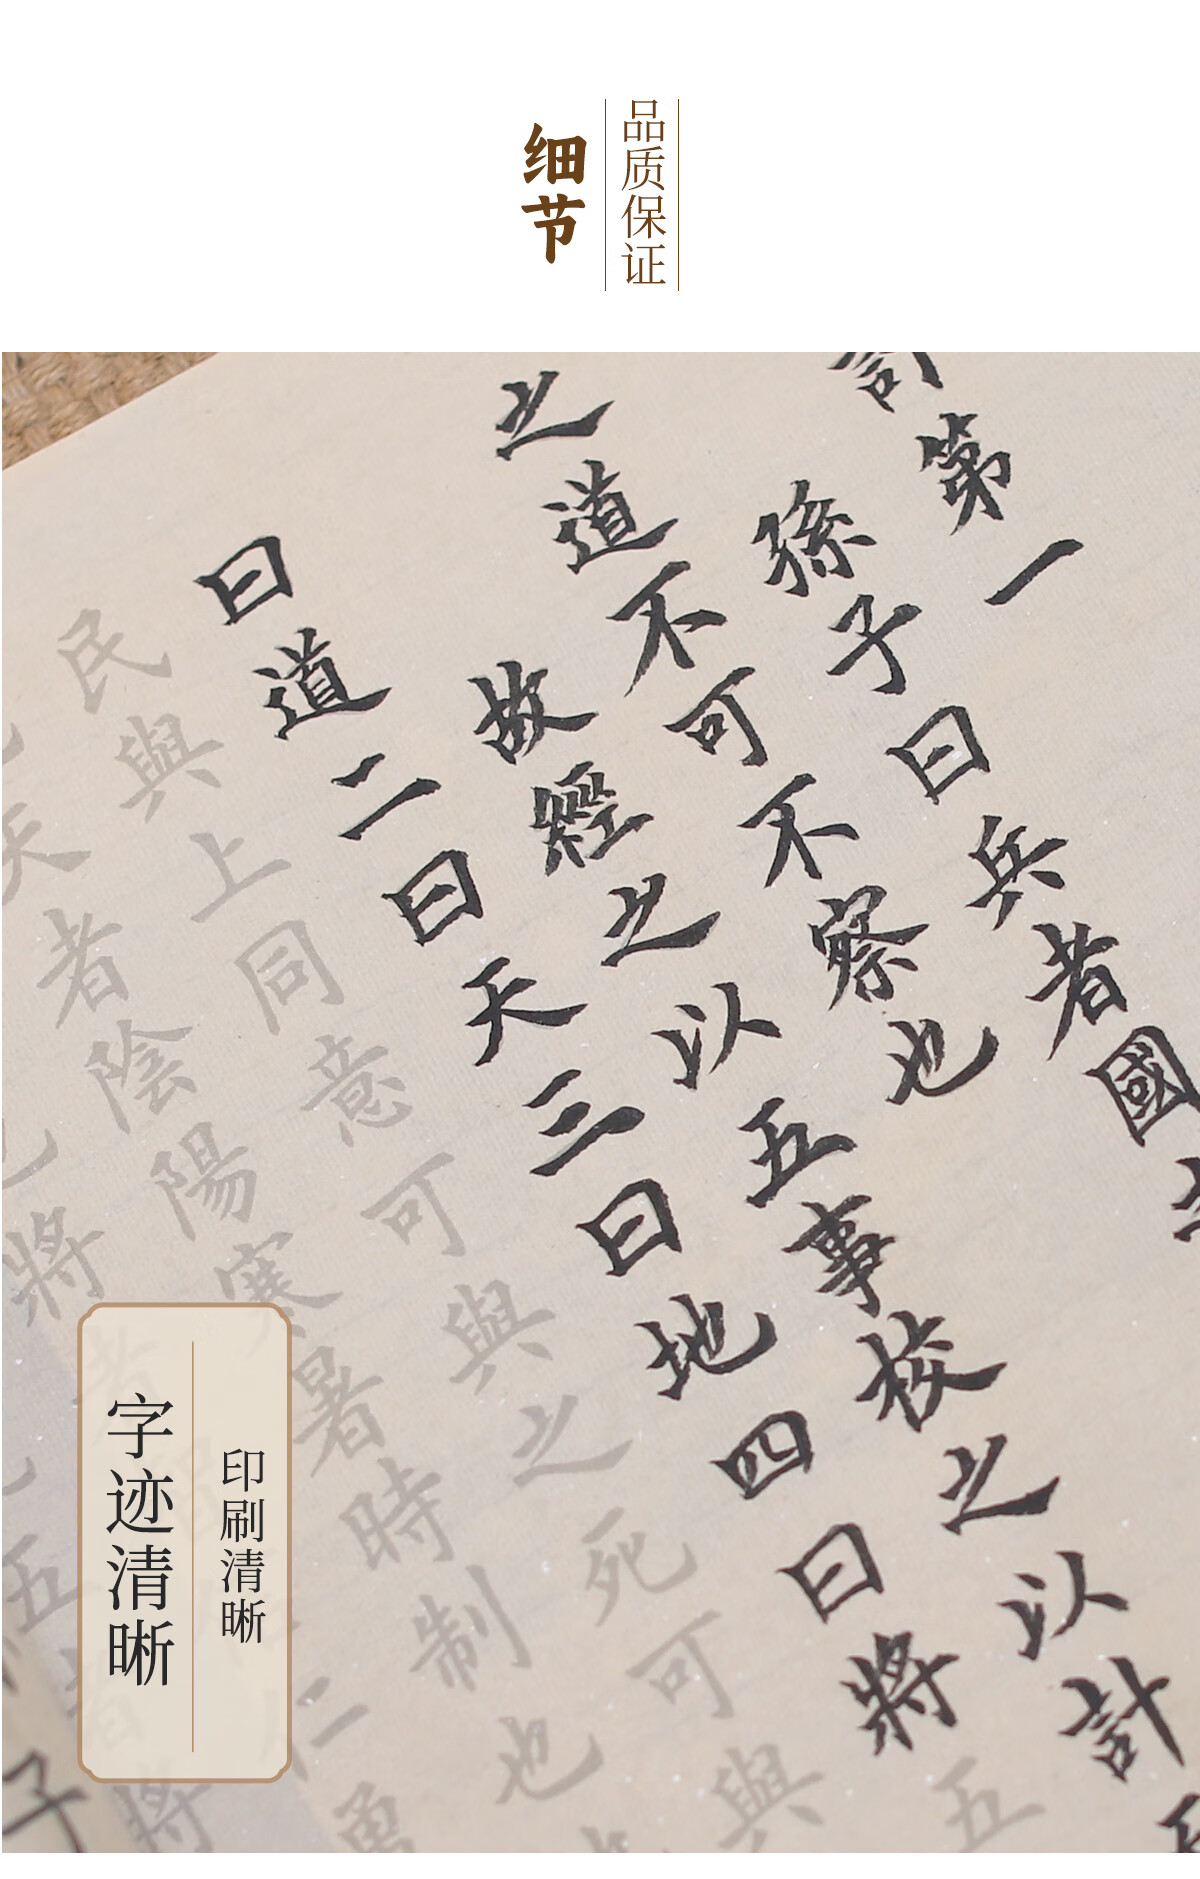 品质保证
细节
計第一
孫子曰兵者國
之道不可不察也
故經之以五事校之以計
曰道二曰天三曰地四曰將五
民與上同意可與之死可與
天者陰陽寒暑時制也
將者
仁勇
五者將
子
印刷清晰
字迹清晰